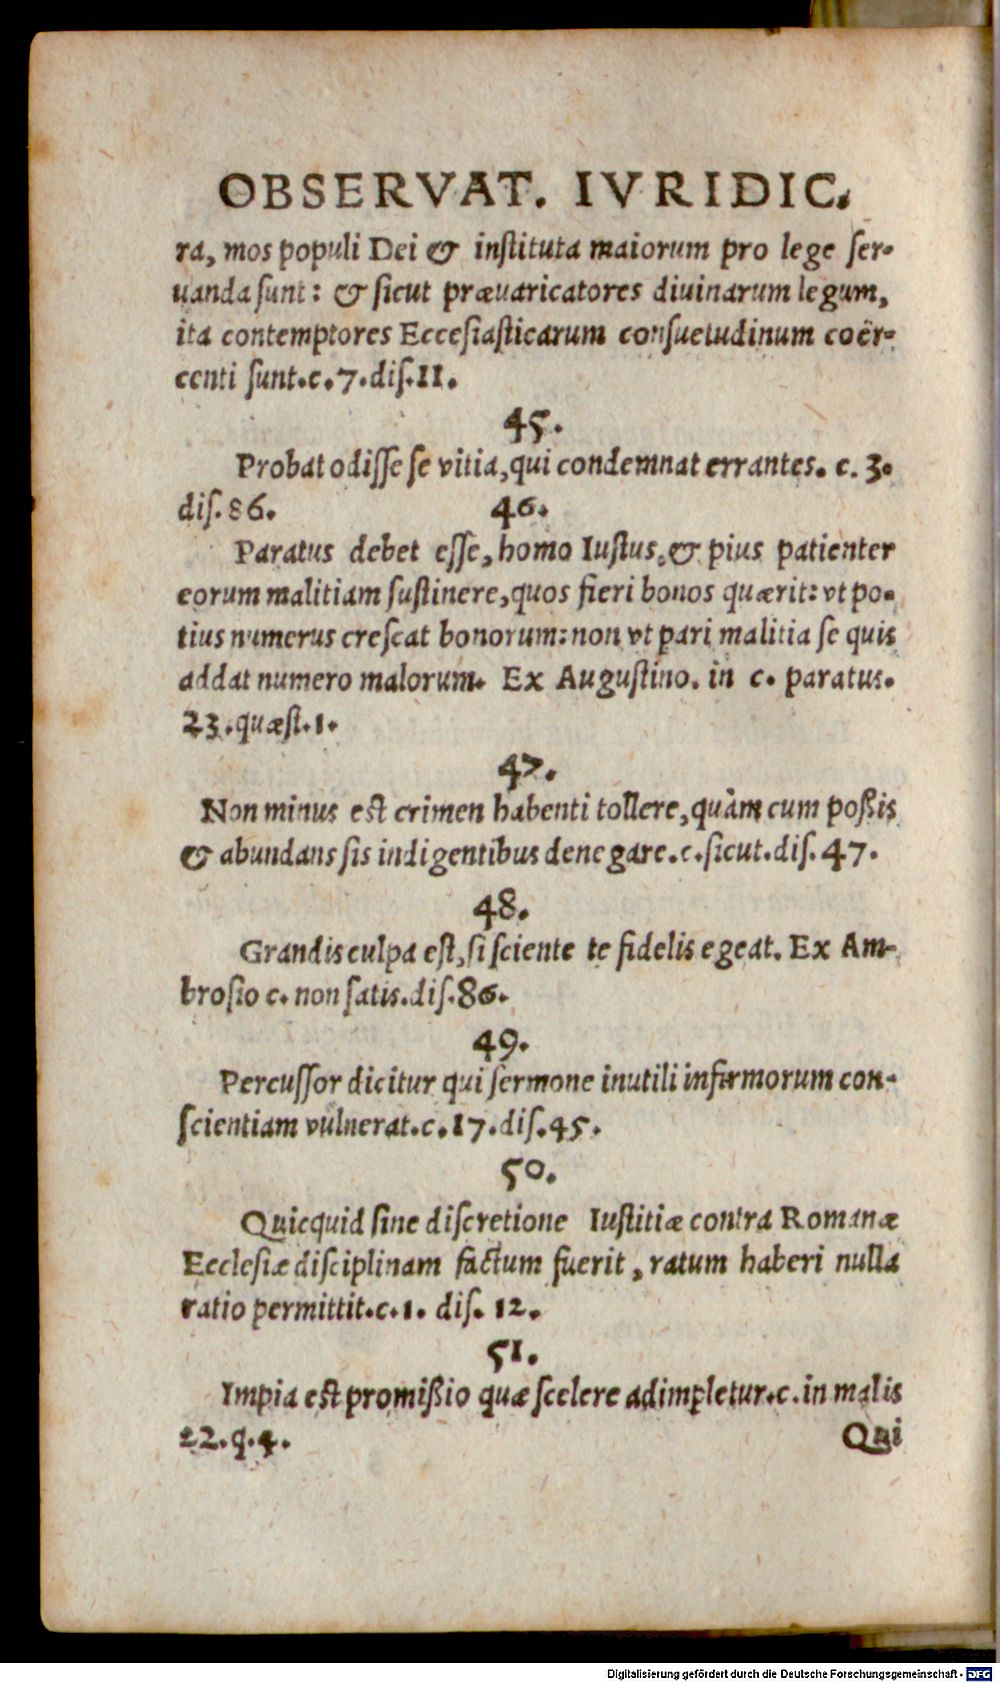 OBSERVAT. IVRIDIC.
ra, mos populi Dei & instituta maiorum pro lege ser-
uanda sunt: & sicut præuaricatores diuinarum legum,
ita contemptores Eccesiasticarum consuetudinum coër-
centi sunt.c.7.dis.11.
45.
Probat odisse se vitia, qui condemnat errantes. c. 3.
dis.86. 46.
Paratus debet esse, homo Iustus, & pius patienter
eorum malitiam sustinere, quos fieri bonos quærit: vt po-
tius numerus crescat bonorum: non vt pari malitia se quis
addat numero malorum. Ex Augustino. in c. paratus.
23.quæst.1.
47.
Non minus est crimen habenti tollere, quàm cum poßis
& abundans sis indigentibus denegare.c.sicut.dis.47.
48.
Grandis culpa est, si sciente te fidelis egeat. Ex Am-
brosio c. non satis.dis.86.
49.
Percussor dicitur qui sermone inutili infirmorum con-
scientiam vulnerat.c.17.dis.45.
50.
Quicquid sine discretione Iustitiæ contra Romanæ
Ecclesiæ disciplinam factum fuerit, ratum haberi nulla
ratio permittit.c.1. dis. 12.
51.
Impia est promißio quæ scelere adimpletur.c.in malis
22.q.4. Qui
Digitalisierung gefördert durch die Deutsche Forschungsgemeinschaft - DFG